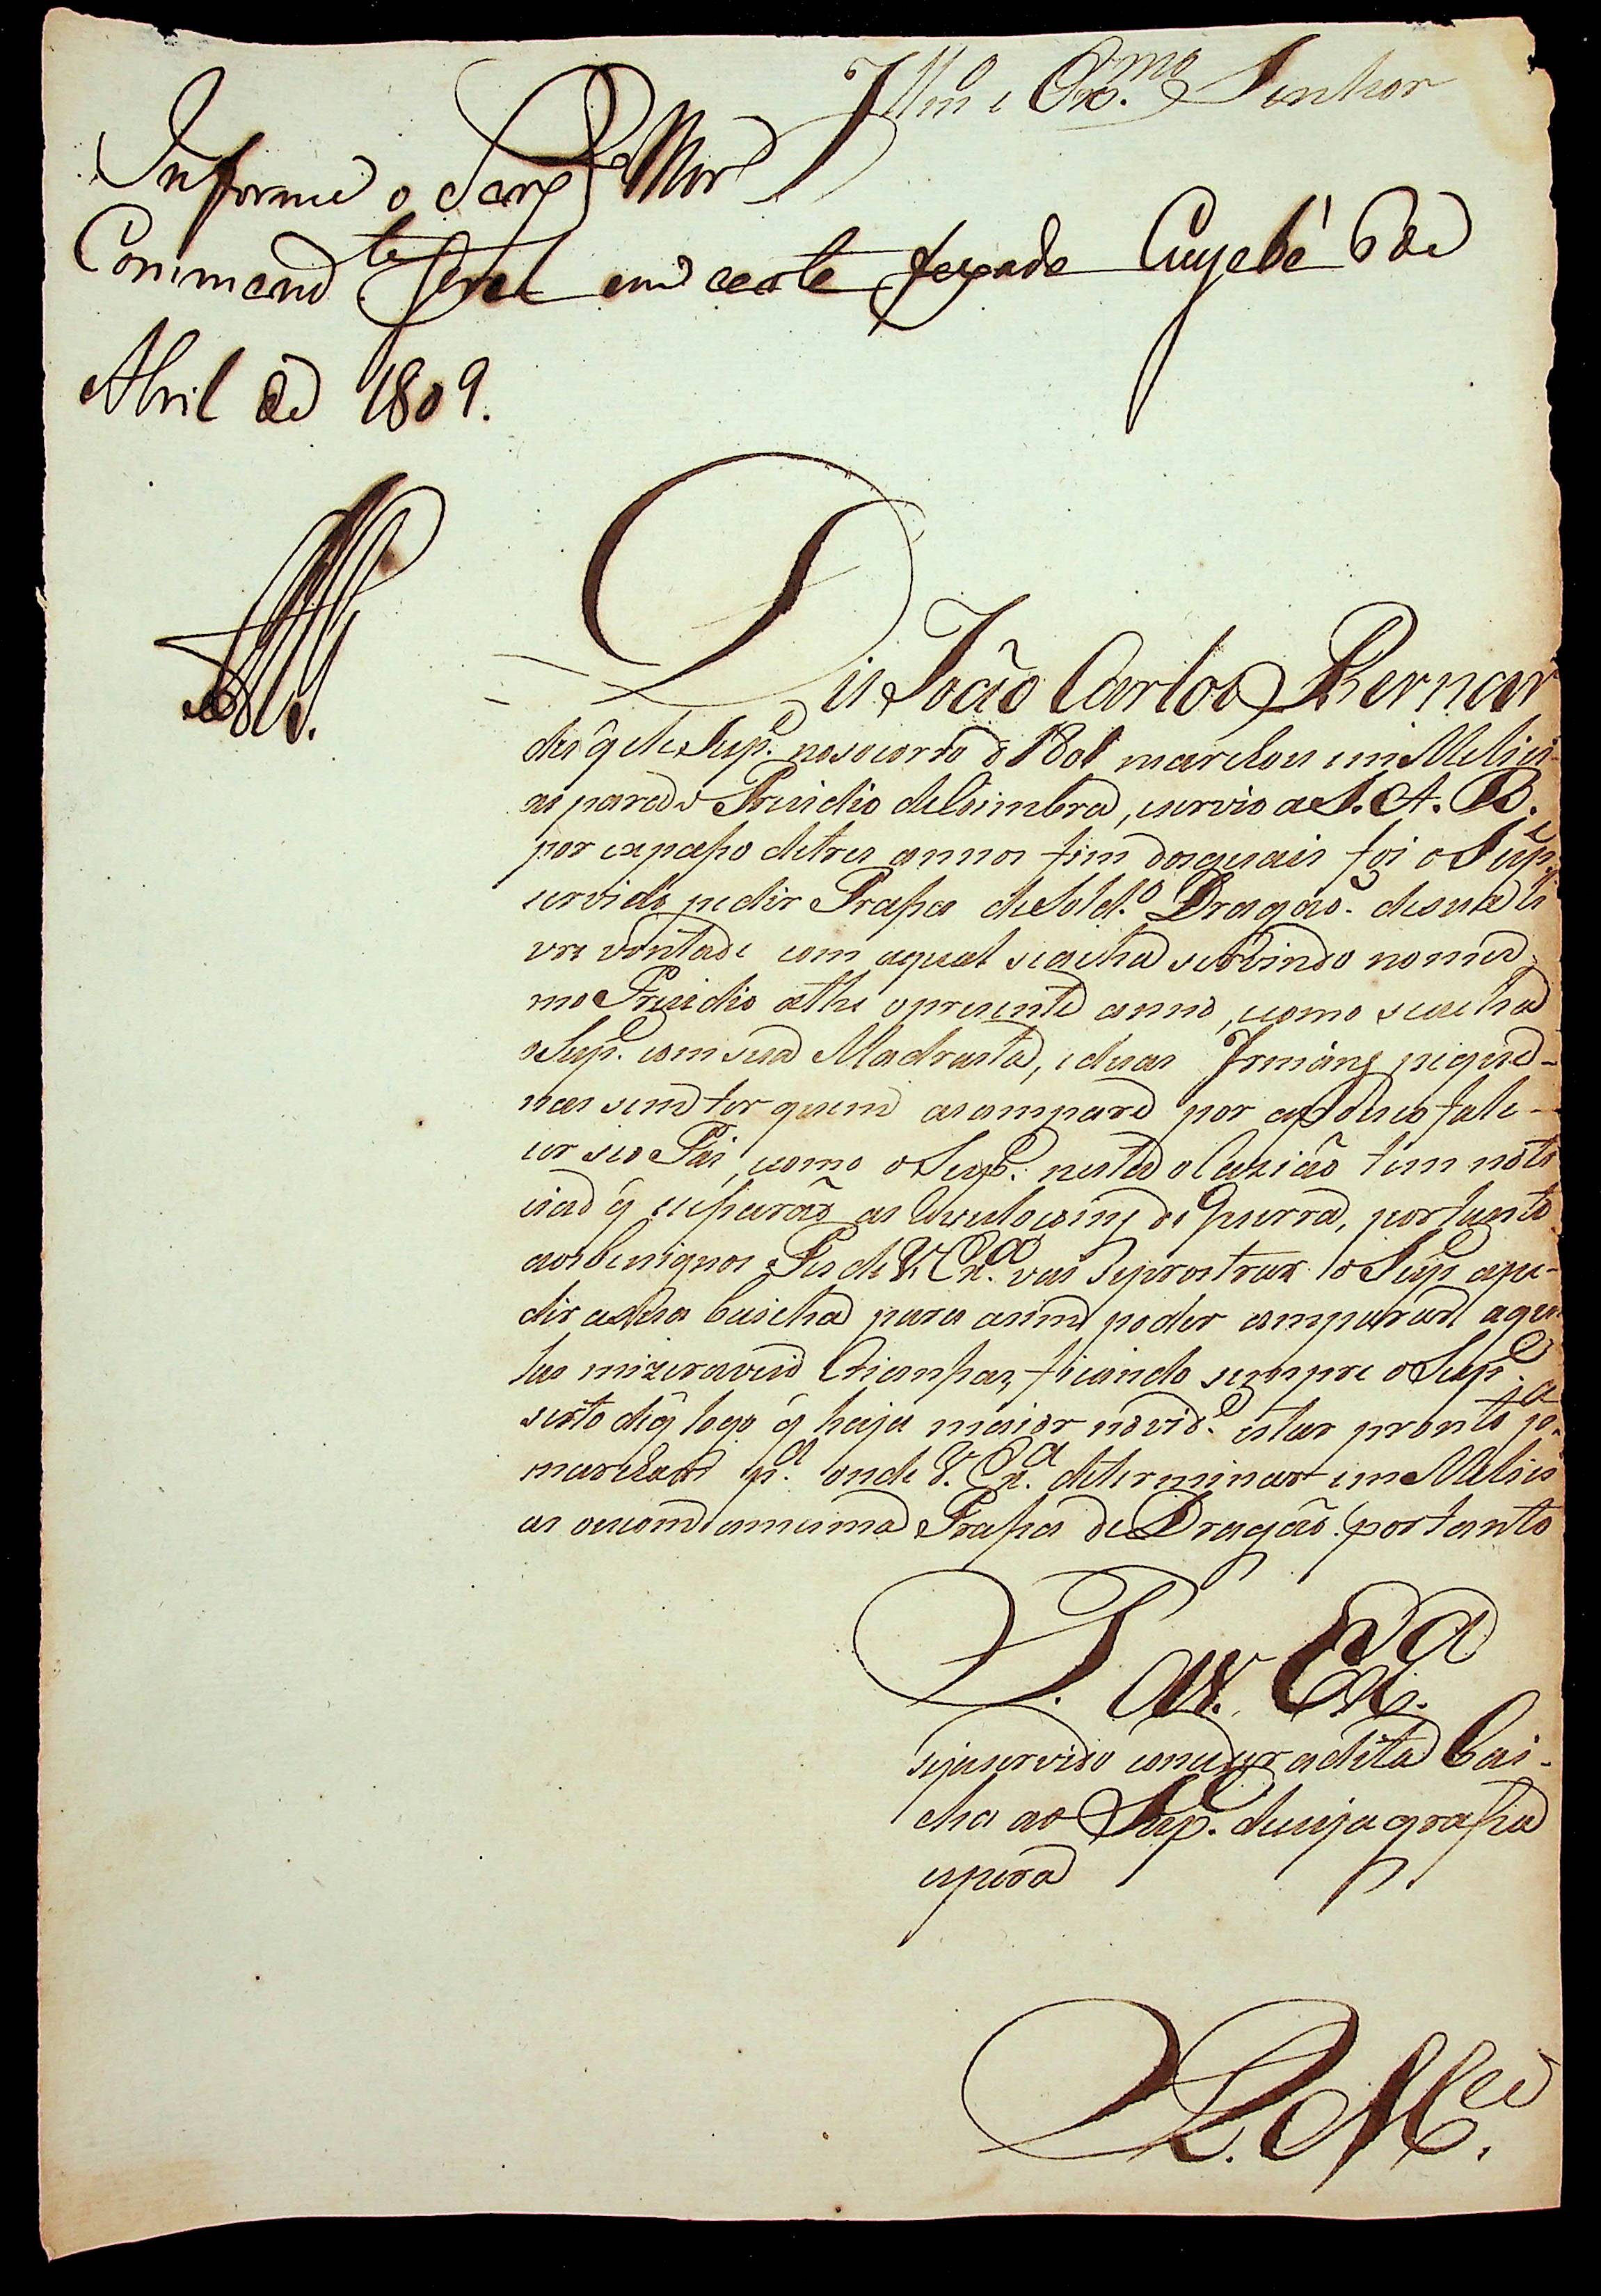 Illmo e Exmo. Senhor
Informe o Sargto Mor
Commandte Geral em carta fexada Cuyabá 6 de
Abril de 1809.
Dis João Carlos Bernar
des q̃ ele Supe. no socorro d 1801 marchou em Milici-
as para o Prezidio de Coimbra, e servio a S. A. R.
por expasso de tres annos fim dos quais foi o Supe.
servido pedir Prassa de Soldo. Dragão. de sua li
vre vontade com a qual se acha servindo no mes-
mo Prezidio athe o prezente anno, e como se acha
o Supe. com sua Madrasta, e duas Irmáns peque-
nas sem ter quem as ampare por a pouco fale-
cer seo Pai, e como o Supe. nesta ocazião tem noti
cia q̃ cessarão as Revuluçoins de Guerra, por tanto
aos benignos Pes de V. Exa. vai se prostrar o Supe ape-
dir a sua baicha para asim poder amparar aque
las mizeraveis Criansas, ficando sempre o Supe.
serto de q̃ logo q̃ haja maior novide. estar pronto pa.
marchar pa. onde V. Exa. determinar em Milici
as ou com a mesma Prassa de Dragão. portanto
P. a V. Exa.
seja servido conceder a dita bai-
cha ao Supe. de cuja grassa
espera
E. R. Mce.